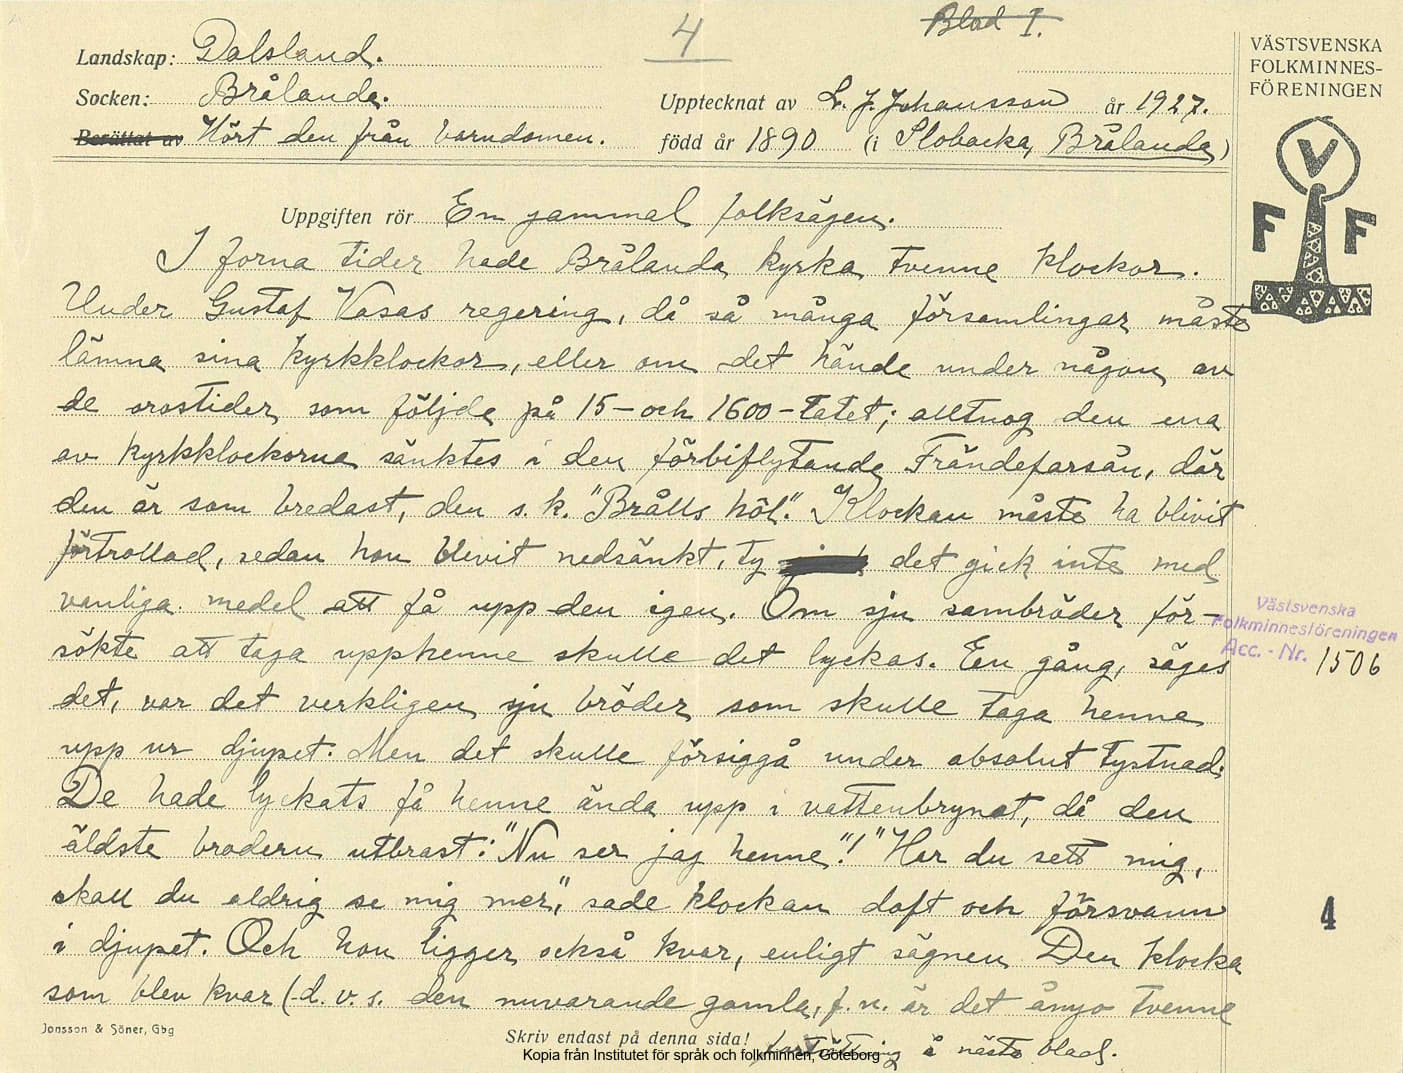 4
Blad I.
Landskap: Dalsland.
Socken: Brålanda.
Upptecknat av L. J. Johansson år 1927.
Berättat av Hört den från barndomen.
född år 1890 (i Slobacka, Brålanda)
VÄSTSVENSKA
FOLKMINNES-
FÖRENINGEN
V
F F
Uppgiften rör En gammal folksägen.
I forna tider hade Brålanda kyrka tvenne klockor.
Under Gustaf Vasas regering, då så många församlingar måste
lämna sina kyrkklockor, eller om det hände under någon av
de orostider som följde på 15- och 1600-talet; alltnog den ena
av kyrkklockorna sänktes i den förbiflytande Frändeforsån, där
den är som bredast, den s.k. "Brålls höl". Klockan måste ha blivit
förtrollad, sedan hon blivit nedsänkt, ty det gick inte med
vanliga medel att få upp den igen. Om sju sambröder för-
sökte att taga upp henne skulle det lyckas. En gång, säges
det, var det verkligen sju bröder som skulle taga henne
upp ur djupet. Men det skulle försiggå under absolut tystnad.
De hade lyckats få henne ända upp i vattenbrynet, då den
äldste brodern utbrast: "Nu ser jag henne"! "Har du sett mig,
skall du aldrig se mig mer", sade klockan doft och försvann
i djupet. Och hon ligger också kvar, enligt sägnen. Den klocka
som blev kvar (d.v.s. den nuvarande gamla, f.n. är det ånyo tvenne
Västsvenska
Folkminnesföreningen
Acc. - Nr. 1506
4
Jonsson & Söner, Gbg
Skriv endast på denna sida!
fortsättning å nästa blad.
Kopia från Institutet för språk och folkminnen, Göteborg